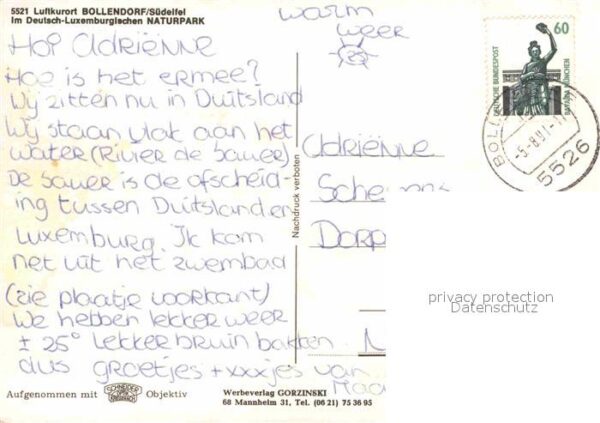 5521 Luftkurort BOLLENDORF/Südeifel
im Deutsch-Luxemburgischen NATURPARK
warm
weer
Hoi Adriënne
Hoe is het ermee?
Wij zitten nu in Duitsland
Wij staan vlak aan het
water (Rivier de Sauer)
De Sauer is de afscheid-
ing tussen Duitsland en
Luxemburg. Ik kom
net uit het zwembad
(zie plaatje voorkant)
We hebben lekker weer
± 25° Lekker bruin bakken.
dus groetjes + xxxjes van
Adriënne
Dorp
Nachdruck verboten
60
DEUTSCHE BUNDESPOST
BAVARIA MÜNCHEN
5526
privacy protection
Datenschutz
Aufgenommen mit
SCHNEIDER
KREUZNACH
Objektiv
Werbeverlag GORZINSKI
68 Mannheim 31, Tel. (06 21) 75 36 95